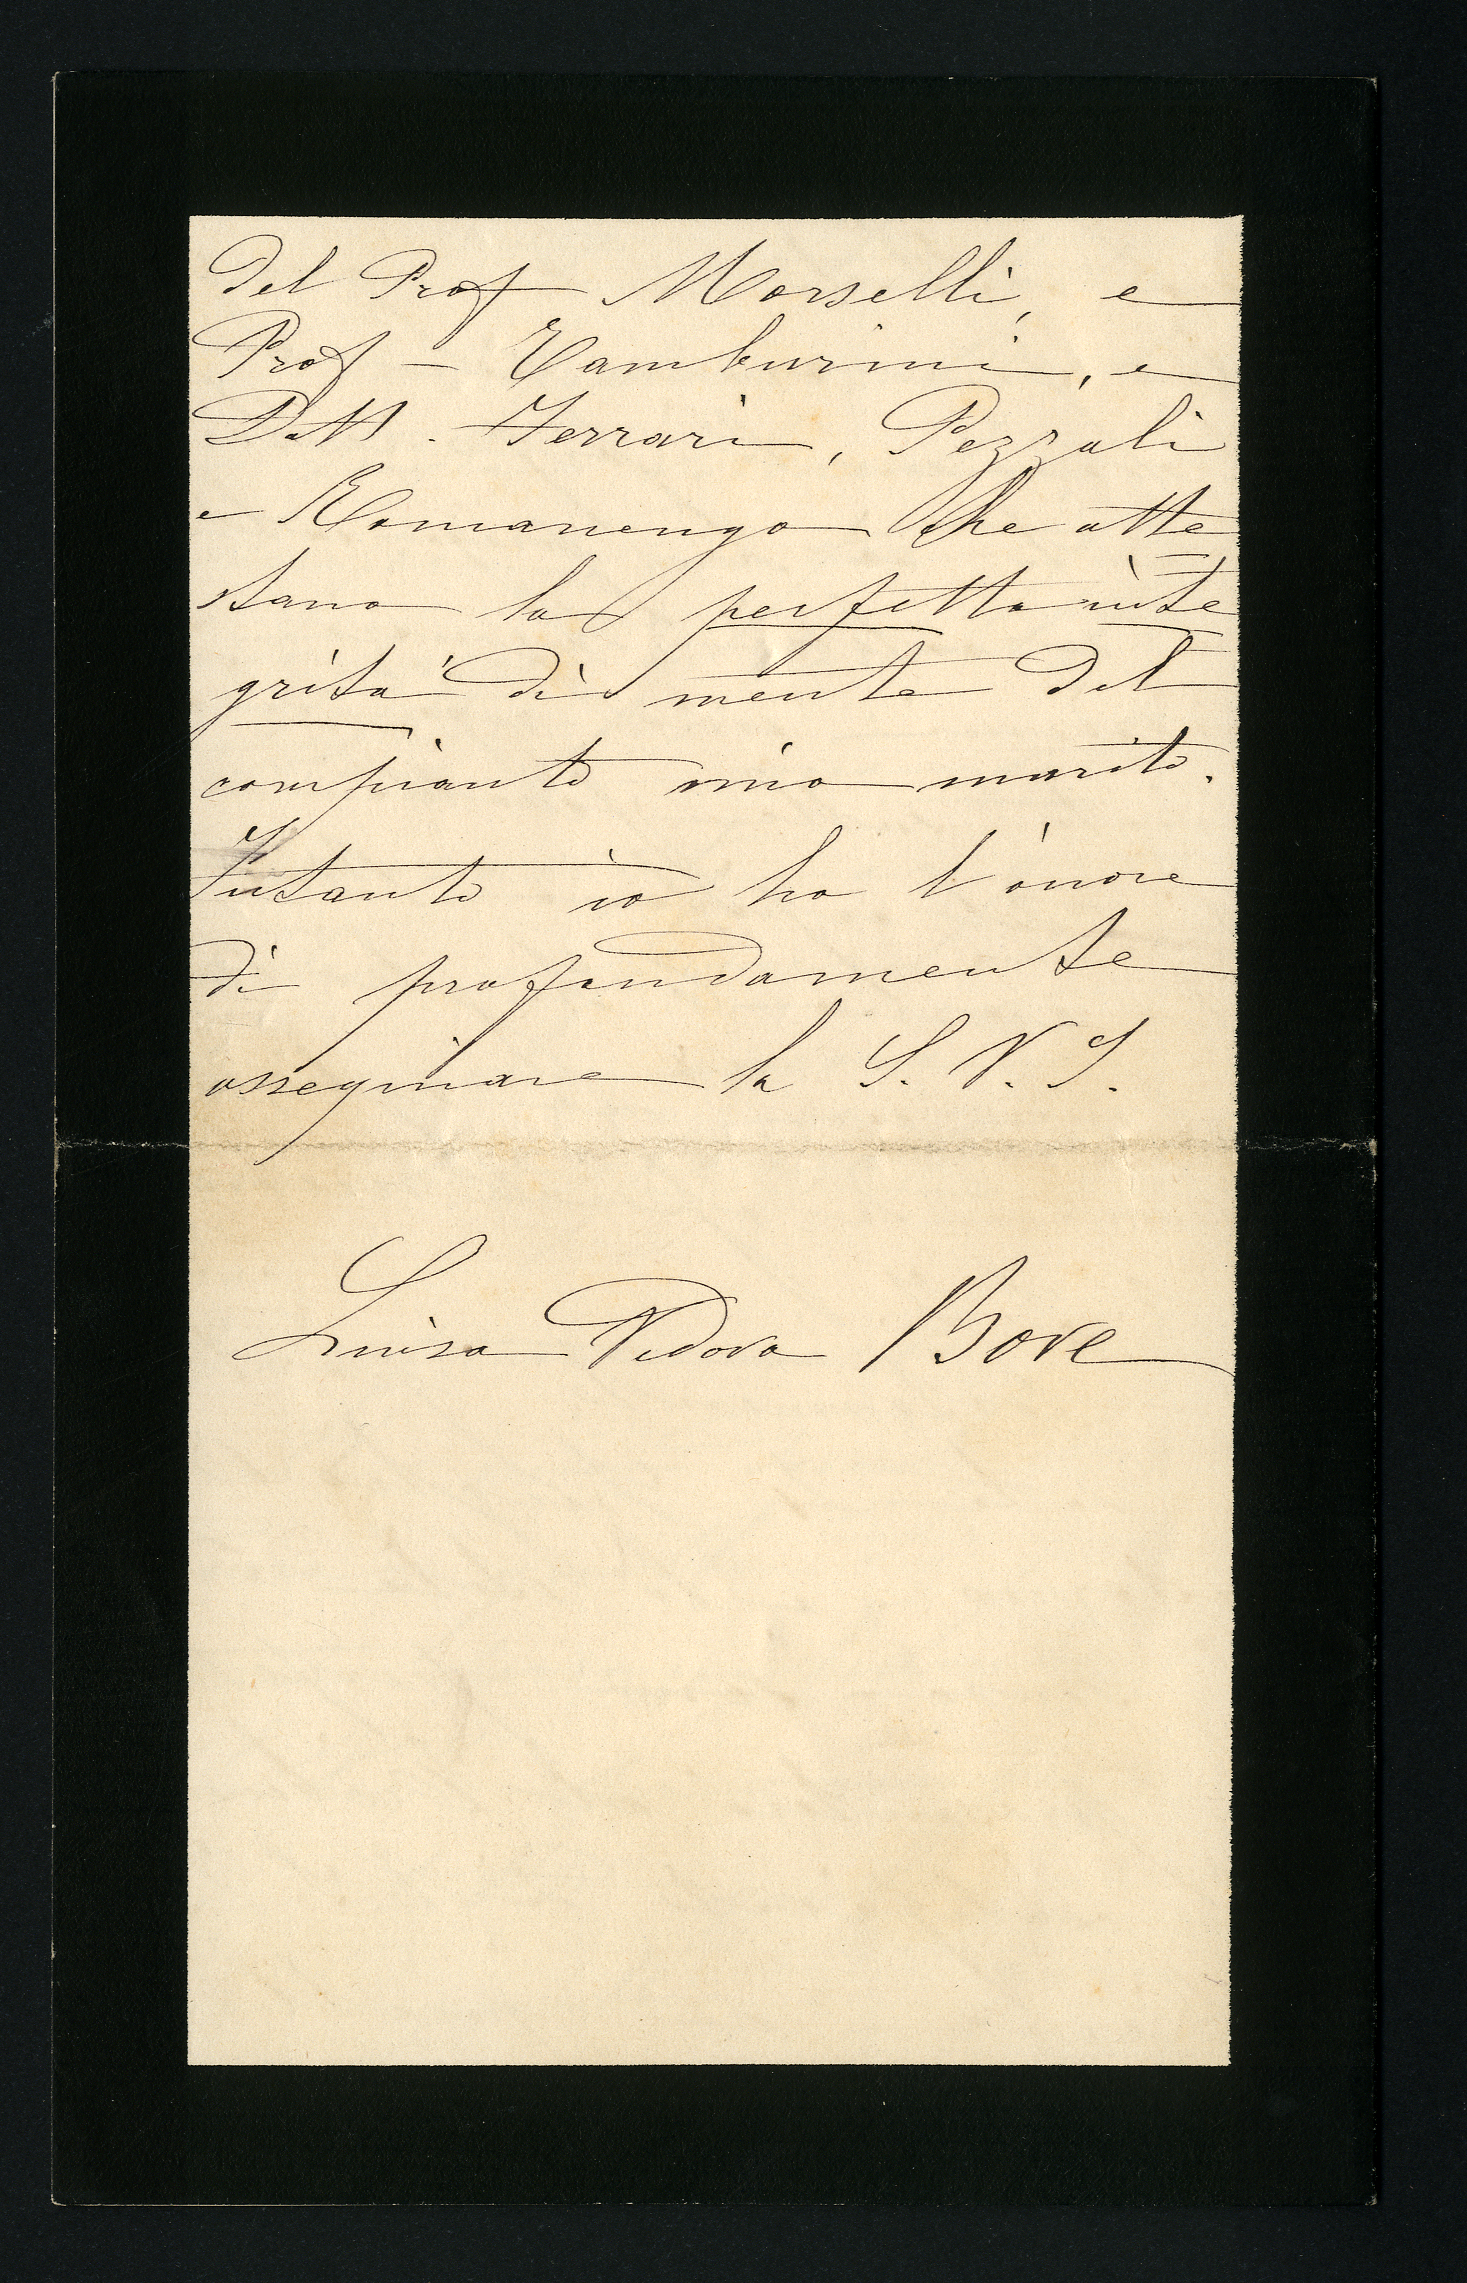 del Prof Morselli, e
Prof - Tamburini, e
Dott. Ferrari, Pezzali
e Romanengo che atte
stano la perfetta inte
grità di mente del
compianto mio marito.
Intanto io ho l'onore
di profondamente
ossequiare la S. V. I.
Luisa Vedova Bove